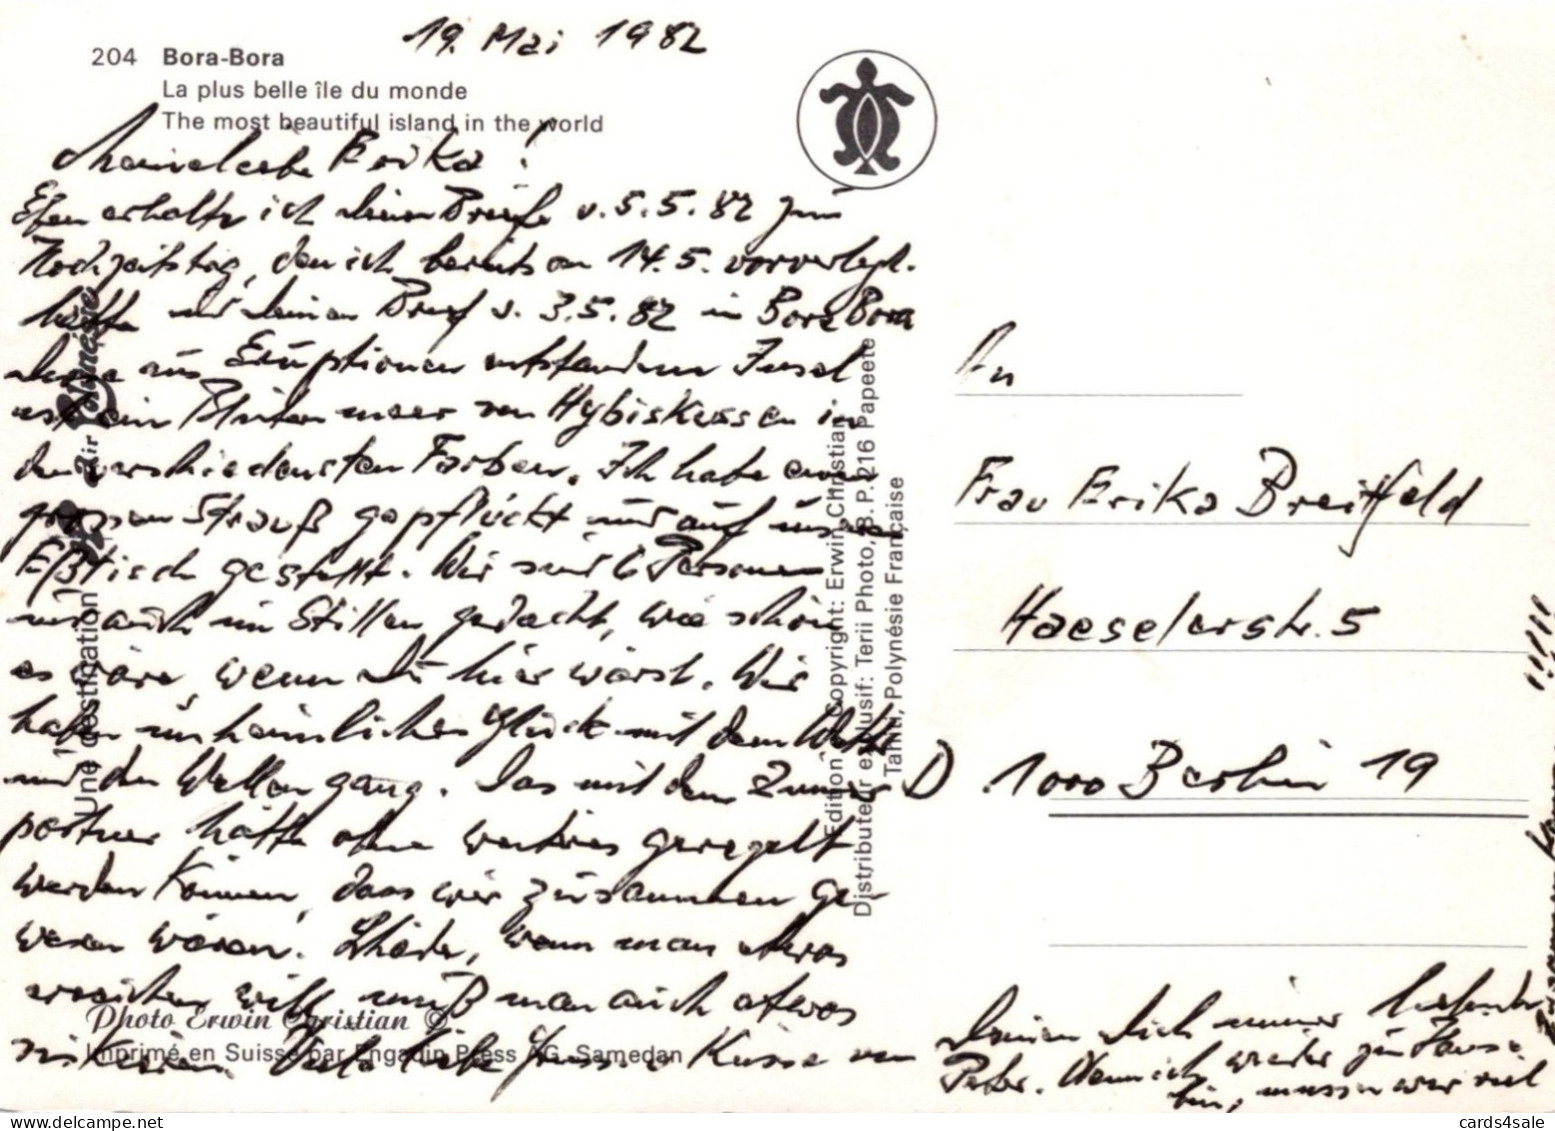 19. Mai 1982
204 Bora-Bora
La plus belle île du monde
The most beautiful island in the world
Meine liebe Erika!
Eben erhalte ich deinen Brief v. 5.5.82 zum
Hochzeitstag, den ich bereits am 14.5. vorverlegt
hatte und deinen Brief v. 3.5.82 in Bora Bora
Diese aus Eruptionen entstandene Insel
ist ein Blütenmeer von Hybiskussen in
den verschiedensten Farben. Ich habe einen
grossen Strauß gepflückt und auf unsern
Eßtisch gestellt. Wir sind 6 Personen
und auch im Stillen gedacht, wie schön
es wäre, wenn Du hier wärst. Wir
haben unheimliches Glück mit dem Wetter
und den Wellengang. Das mit dem Zimmer
partner hätte ohne weiteres geregelt
werden können, dass wir zusammen ge-
wesen wären. Schade, wenn man etwas
erreichen will, muß man auch etwas
riskieren. Viele liebe Grüsse Küsse von
Deinen Dich immer liebenden
Peter. Wenn ich wieder zu Hause
bin, müssen wir viel
zusammen
An
Frau Erika Breitfeld
Haeselerstr. 5
D 1000 Berlin 19
Une destination Air Polynésie
Edition, Copyright: Erwin Christian
Distributeur exlusif: Terii Photo, B. P. 216 Papeete
Tahiti, Polynésie Française
Photo Erwin Christian ©
Imprimé en Suisse par Engadin Press AG, Samedan
www.delcampe.net
cards4sale